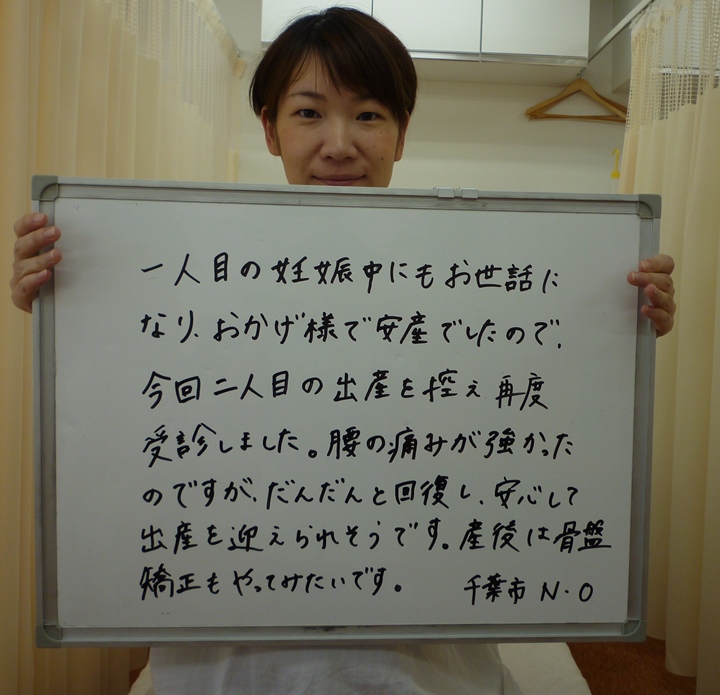 一人目の妊娠中にもお世話に
なり、おかげ様で安産でしたので、
今回二人目の出産を控え再度
受診しました。腰の痛みが強かった
のですが、だんだんと回復し、安心して
出産を迎えられそうです。産後は骨盤
矯正もやってみたいです。 千葉市 N・O